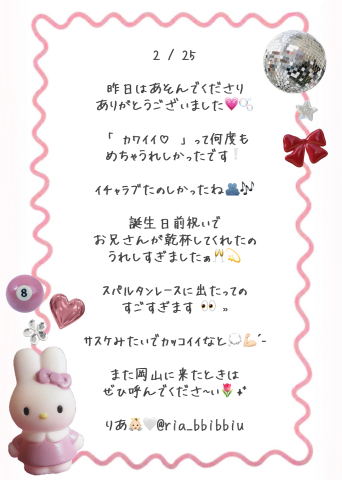 2 / 25
昨日はあそんでくださり
ありがとうございました💗🫧
「 カワイイ♡ 」って何度も
めちゃうれしかったです❕
イチャラブたのしかったね🫂🎶
誕生日前祝いで
お兄さんが乾杯してくれたの
うれしすぎましたぁ🥂💫
スパルタンレースに出たっての
すごすぎます 👀 »
サスケみたいでカッコイイなと💭💪🏻 ̖́-
また岡山に来たときは
ぜひ呼んでくださ~い🌷₊˚
りあ👼🏻🤍@ria_bbibbiu
8